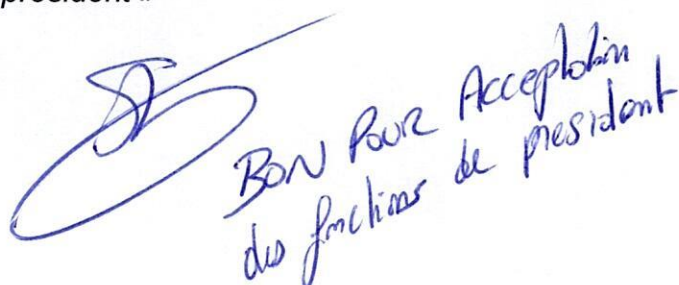 président »
BON POUR Acceptation
des fonctions de president